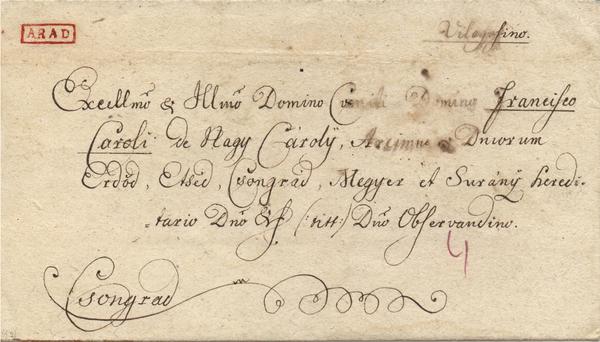 ARAD
Világosino.
Excellmo & Illmo Domino Comiti Domino Francisco
Caroli de Nagy Károlÿ, Arcium Dniorum
Erdöd, Etsed, Csongrad, Megyer et Suránÿ heredi-
tario Dno (:titt:) Dno Observandino.
4
Csongrad